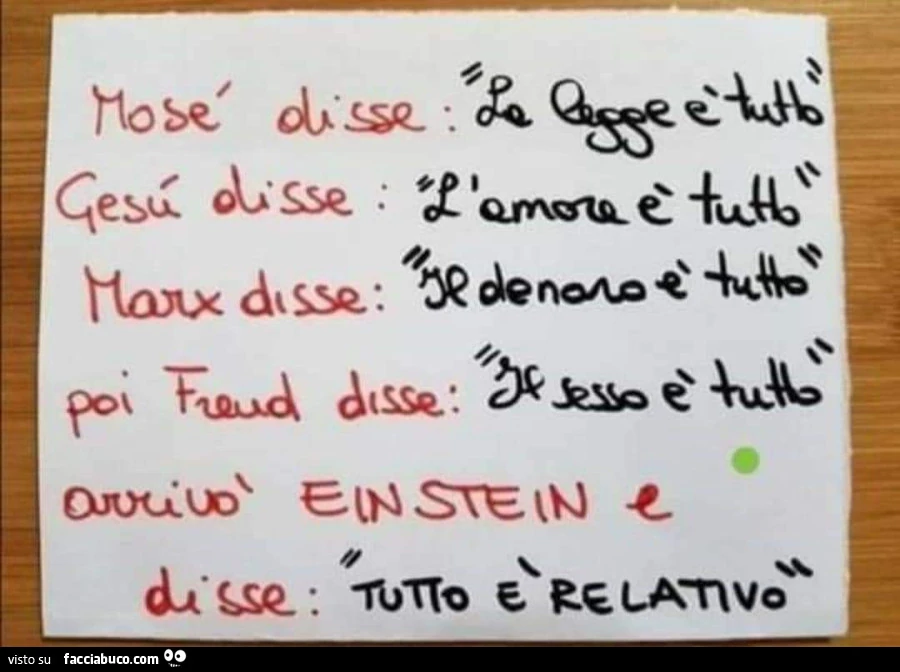 Mosé disse: "La legge è tutto"
Gesú disse: "L'amore è tutto"
Marx disse: "Il denaro è tutto"
poi Freud disse: "Il sesso è tutto"
arrivò EINSTEIN e
disse: "TUTTO È RELATIVO"
visto su facciabuco.com